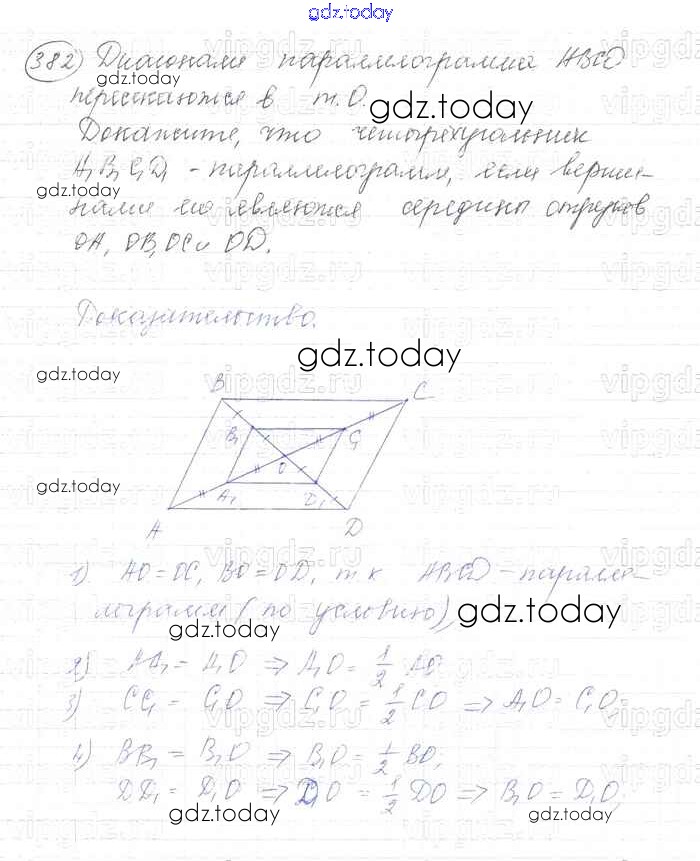 gdz.today
382) Диагонали параллелограмма ABCD
gdz.today
пересекаются в т. O.
gdz.today
Докажите, что четырёхугольник
A₁B₁C₁D₁ - параллелограмм, если верши-
gdz.today
нами его являются середины отрезков
OA, OB, OC и OD.
Доказательство.
gdz.today
gdz.today
B C
B₁ C₁
O
gdz.today
A₁ D₁
A D
1) AO = OC, BO = OD, т.к. ABCD - паралле-
лограмм (по условию),
gdz.today
gdz.today
2) AA₁ = A₁O ⇒ A₁O = 1/2 AO
3) CC₁ = C₁O ⇒ C₁O = 1/2 CO ⇒ A₁O = C₁O,
4) BB₁ = B₁O ⇒ B₁O = 1/2 BO;
DD₁ = D₁O ⇒ D₁O = 1/2 DO ⇒ B₁O = D₁O,
gdz.today
gdz.today
vipgdz.ru